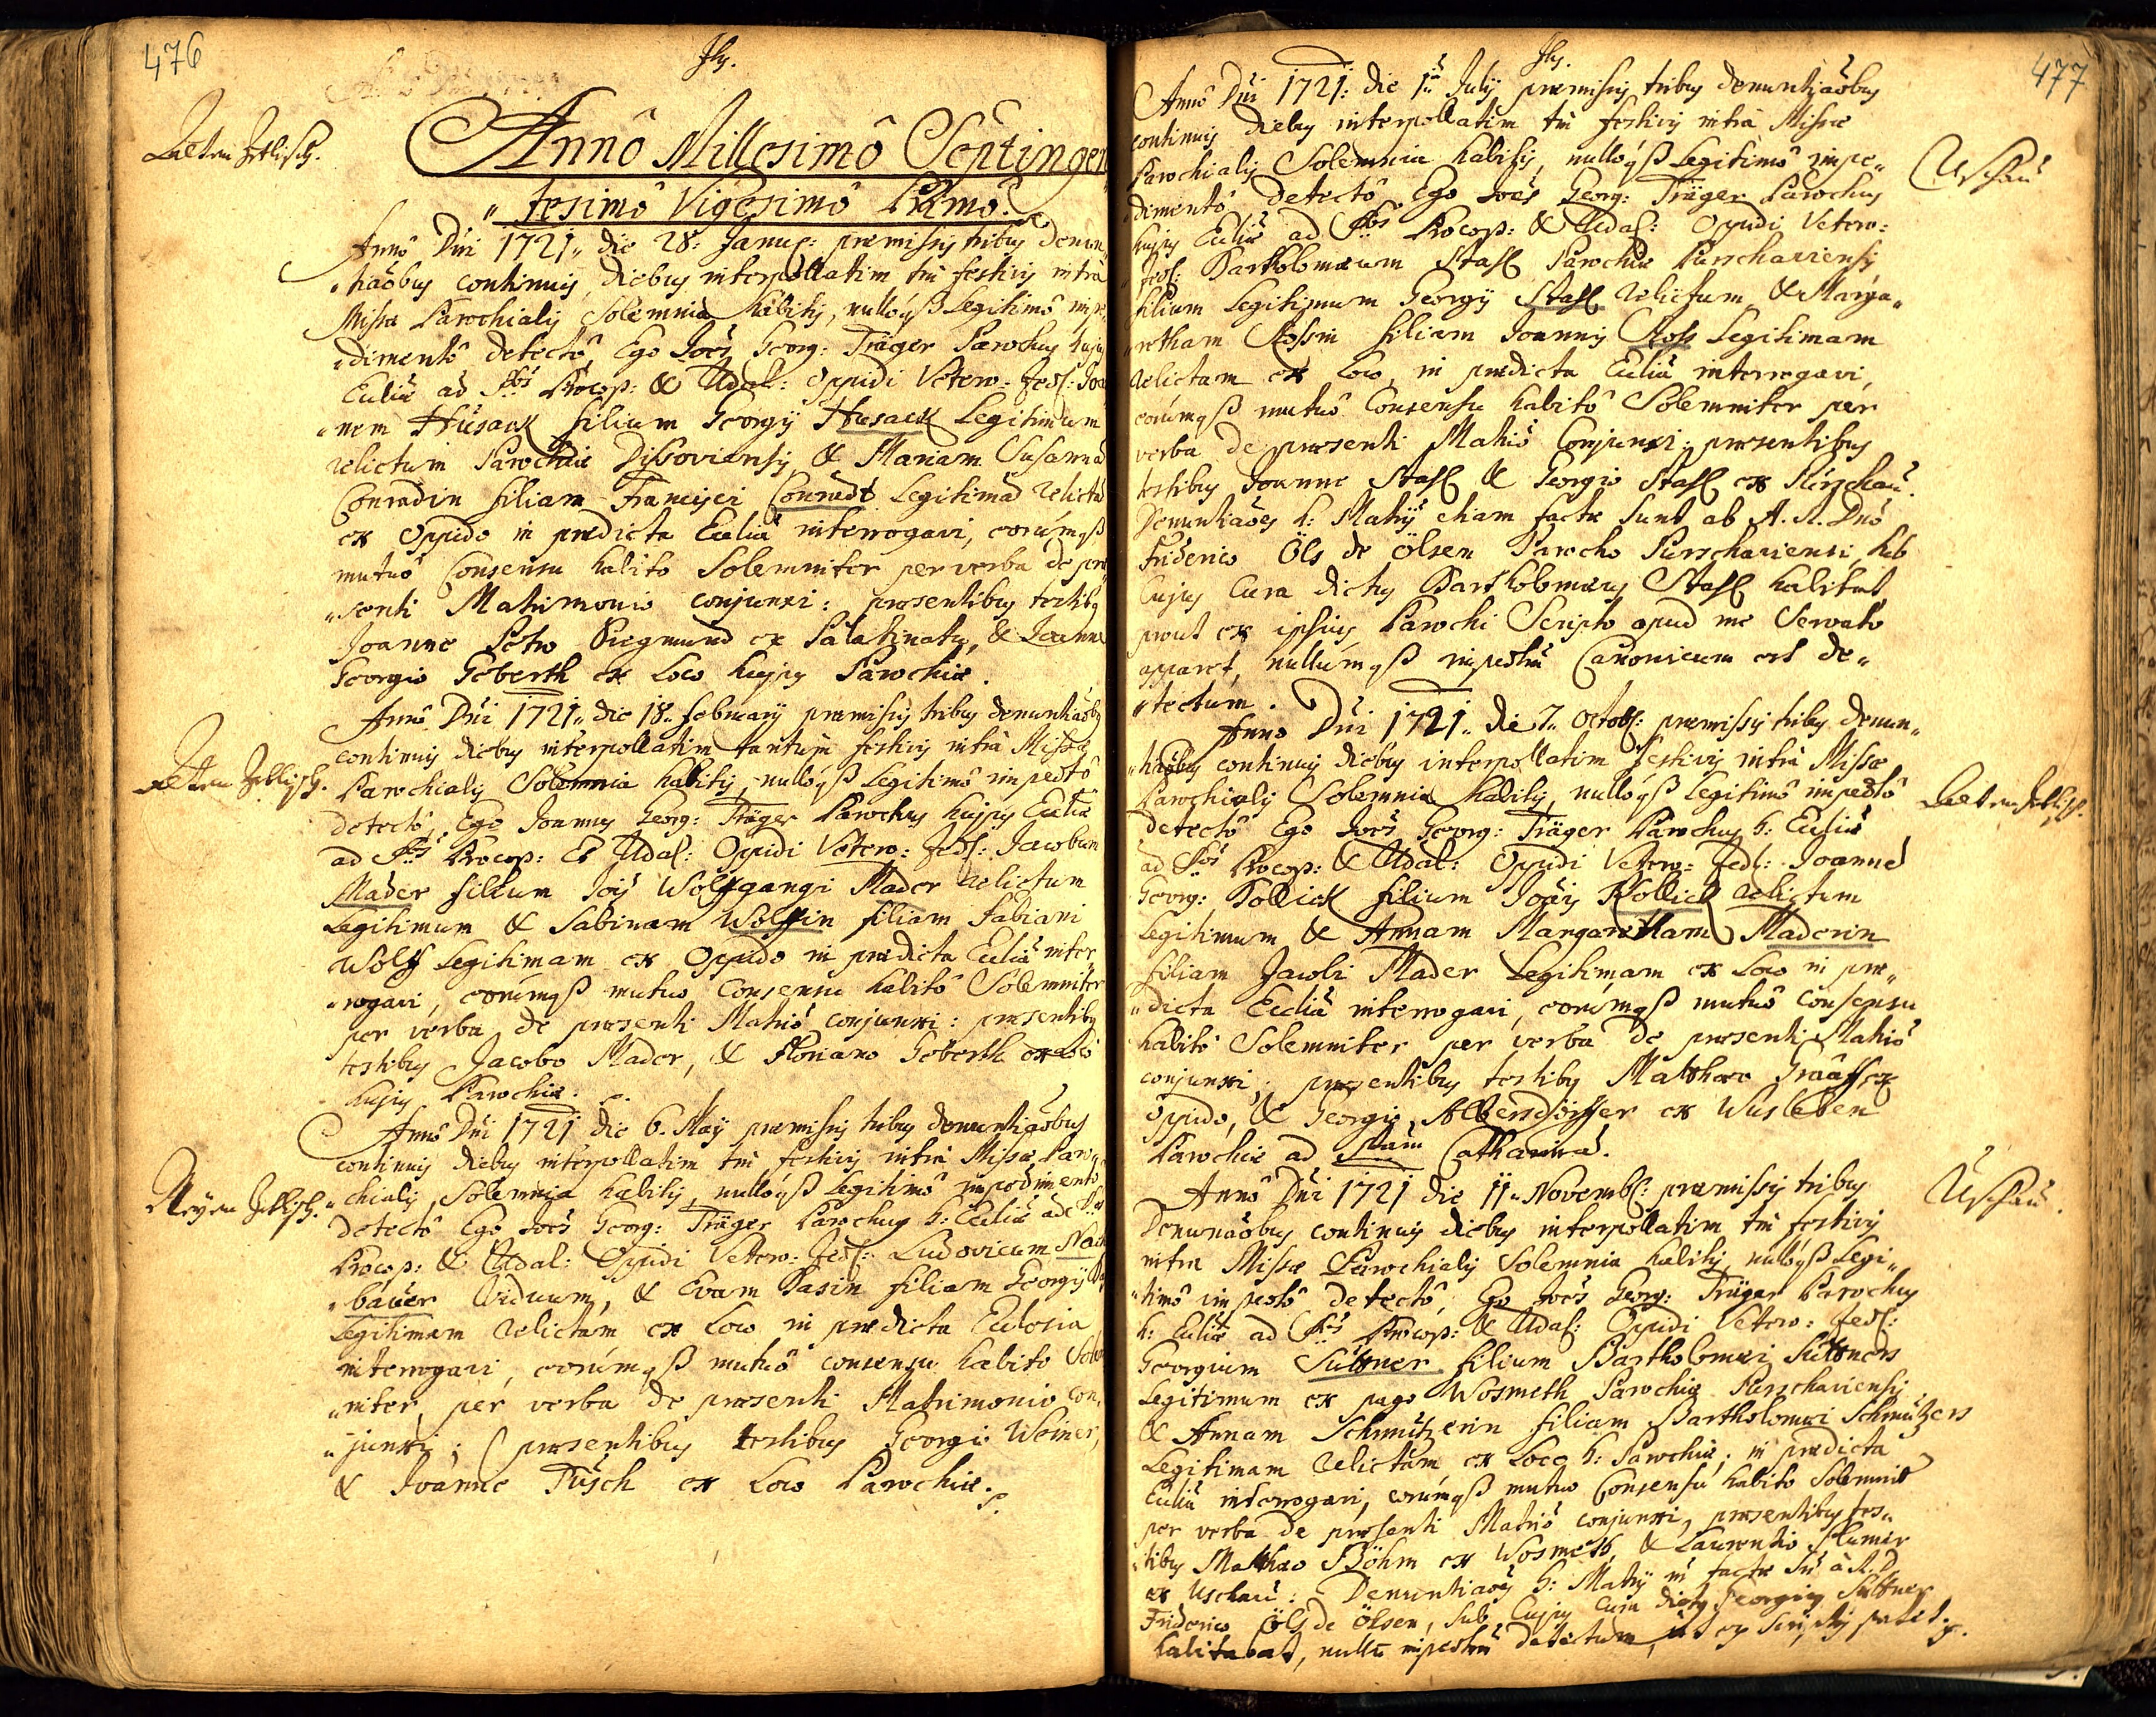 476
Jhs.
Alten Zetlisch.
Annô Millesimô Septingen
„tesimô Vigesimô Primô.
Annô Dni 1721„ die 28: Januar: præmissis tribus denun„
„tiaõbus continuis diebus interpollatim tm festivis intrà
Missæ Parochialis Solemnia habitis, nullôqß Legitimô impe„
„dimentô detectô, Ego Joẽs Georg: Träger Parochus hujus
Eccliæ ad Stos Procop: & Udal: Oppidi Vetero: Zedl: Joa„
„nem Hüsack filium Georgÿ Husack Legitimum
relictum Parochiæ Dissoviensis, & Mariam Susanna
Conradin filiam Francisci Conradt Legitimã relictã
ex Oppido in prædicta Ecclia interrogavi, eorúmqß
mutuô Consensu habito Solemniter per verba de præ„
„senti Matrimonio conjunxi: præsentibus testibus
Joanne Petro Siegmund ex Palatinatu, & Joanne
Georgio Geberth ex Loco hujus Parochiæ.
Annô Dni 1721„ die 18„ Februarÿ præmissis tribus denuntiaõbus
Alten Zettlisch.
continuis diebus interpollatim tantum festivis intrà Missæ
Parochialis Solemnia habitis, nullôqß Legitimô impedtô
detectô, Ego Joannes Georg: Träger Parochus hujus Eccliæ
ad Stos Procop: Et Udal: Oppidi Vetero: Zedl: Jacobum
Mader filium Jois Wolfgangi Mader relictum
Legitimum & Sabinam Wolfin filiam Fabiani
Wolff Legitimam ex Oppido in prædicta Ecclia inter„
„rogavi, eorúmqß mutuo Consensu habitô Solemniter
per verba de præsenti Matriô conjunxi: præsentibus
testibus Jacobo Mader, & Floriano Geberth ex Loco
hujus Parochiæ.
Annô Dni 1721 die 6. Maÿ præmissis tribus denuntiaõbus
continuis diebus interpollatim tm festivis intrà Missæ Paro„
Neÿen Zetlisch.
„chialis Solemnia habitis, nullôqß Legitimô impedimentô
detectô Ego Joẽs Georg: Träger Parochus h: Eccliæ ad Stos
Procop: & Udal: Oppidi Vetero: Zedl: Ludovicum
„baüer Viduum, & Evam Basin filiam Georgÿ
Legitimam relictam ex Loco in prædicta Ecclesia
interrogavi, eorúmqß mutuô consensu habito Solem
„niter, per verba de præsenti Matrimonio con„
„junxi; præsentibus testibus Georgio Weiner,
& Joanne Tüsch ex Loco Parochiæ.
477
Jhs.
Annô Dni 1721: die 1„ Julÿ præmissis tribus denuntiaõbus
continuis diebus interpollatim tm festivis intrà Missæ
Parochialis Solemnia habitis, nullôqß Legitimô impe„
Uschaú
„dimentô detectô Ego Joẽs Georg: Träger Parochus
hujus Eccliæ ad Stos Procop: & Udal: Oppidi Vetero:
Zedl: Bartholomæum Stahl Parochiæ Purschaviensis
filium Legitimum Georgÿ Stahl relictum, & Marga„
„retham Rossin filiam Joannis Ross Legitimam
relictam ex Loco in prædicta Ecclia interrogavi,
eorúmqß mutuô Consensu habitô Solemniter per
verba de præsenti Matriô Conjunxi; præsentibus
testibus Joanne Stahl & Georgio Stahl ex Púrschaú.
Denuntiaões h: Matrÿ etiam factæ sunt ab A. R. Dnô
Friderico Öls de Ölsen Parocho Purschaviensi, sub
Cujus Cura dictus Bartholomæus Stahl habitat,
prout ex ipsius Parochi Scripto apud me Servato
apparet, nullúmqß impedtm Canonicum est de„
„tectum.
Anno Dni 1721„ die 7„ Octob: præmissis tribus denun„
„tiaõbus continuis diebus interpollatim festivis intrà Missæ
Parochialis Solemnia habitis, nullôqß Legitimô impedtô
Alten Zetlisch.
detectô Ego Joẽs Georg: Träger Parochus h: Eccliæ
ad Stos Procop: & Udal: Oppidi Vetero: Zedl: Joannẽ
Georg: Kollick filium Joãis Kollick relictum
Legitimum & Annam Margaretham Maderin
filiam Jacobi Mader Legitimam ex Loco in præ„
„dicta Ecclia interrogavi, eorúmqß mutuô Consensu
habitô Solemniter per verba de præsenti Matriô
conjunxi; præsentibus testibus Matthæo Graaff ex
Oppido, & Georgio Albersdörffer ex Wusleben
Parochiæ ad Stam Catharinã.
Annô Dni 1721 die 11„ Novemb: præmissis tribus
Uschaú.
Denunaõbus continuis diebus interpollatim tm festivis
intra Missæ Parochialis Solemnia habitis, nullôqß Legi„
„timô impedtô detectô, Ego Joẽs Georg: Träger Parochus
h: Eccliæ ad Stos Procop: & Udal: Oppidi Vetero: Zedl:
Georgium Súttner filium Bartholomæi Súttners
Legitimum ex pago Wosmeth Parochiæ Purschaviensis
& Annam Schmútzerin filiam Bartholomæi Schmútzers
Legitimam relictam ex Loco h: Parochiæ; in prædicta
Ecclia interrogavi, eorúmqß mutuo Consensu habito Solemnit
per verba de præsenti Matriô conjunxi, præsentibus tes„
„tibus Matthæo Böhm ex Wosmeth, & Laurentio Plumer
ex Uschaú: Denuntiaões h: Matrÿ factæ à R. D.
Friderico Öls de Ölsen, sub Cujus Cura dictus Georgius Súttner
habitabat, nullũ impedtm detectum, ut ex scriptis patet.